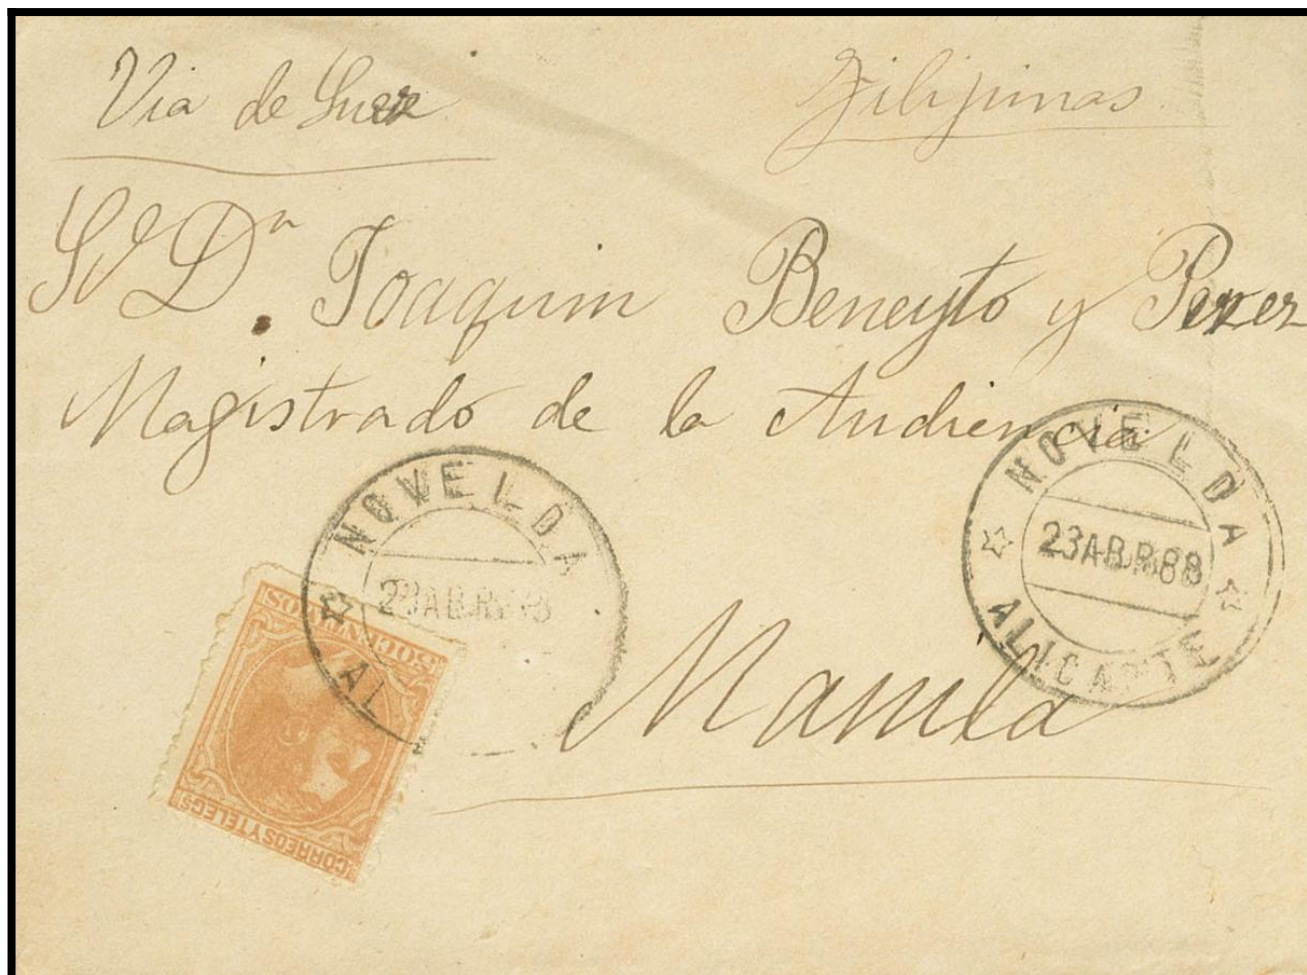 Via de Suez
Filipinas
Sr Dn Joaquin Beneyto y Perez
Magistrado de la Audiencia
NOVELDA
23 ABR 88
AL
NOVELDA
23 ABR 88
ALICANTE
50 CENTIMOS
CORREOS Y TELEGS
Manila